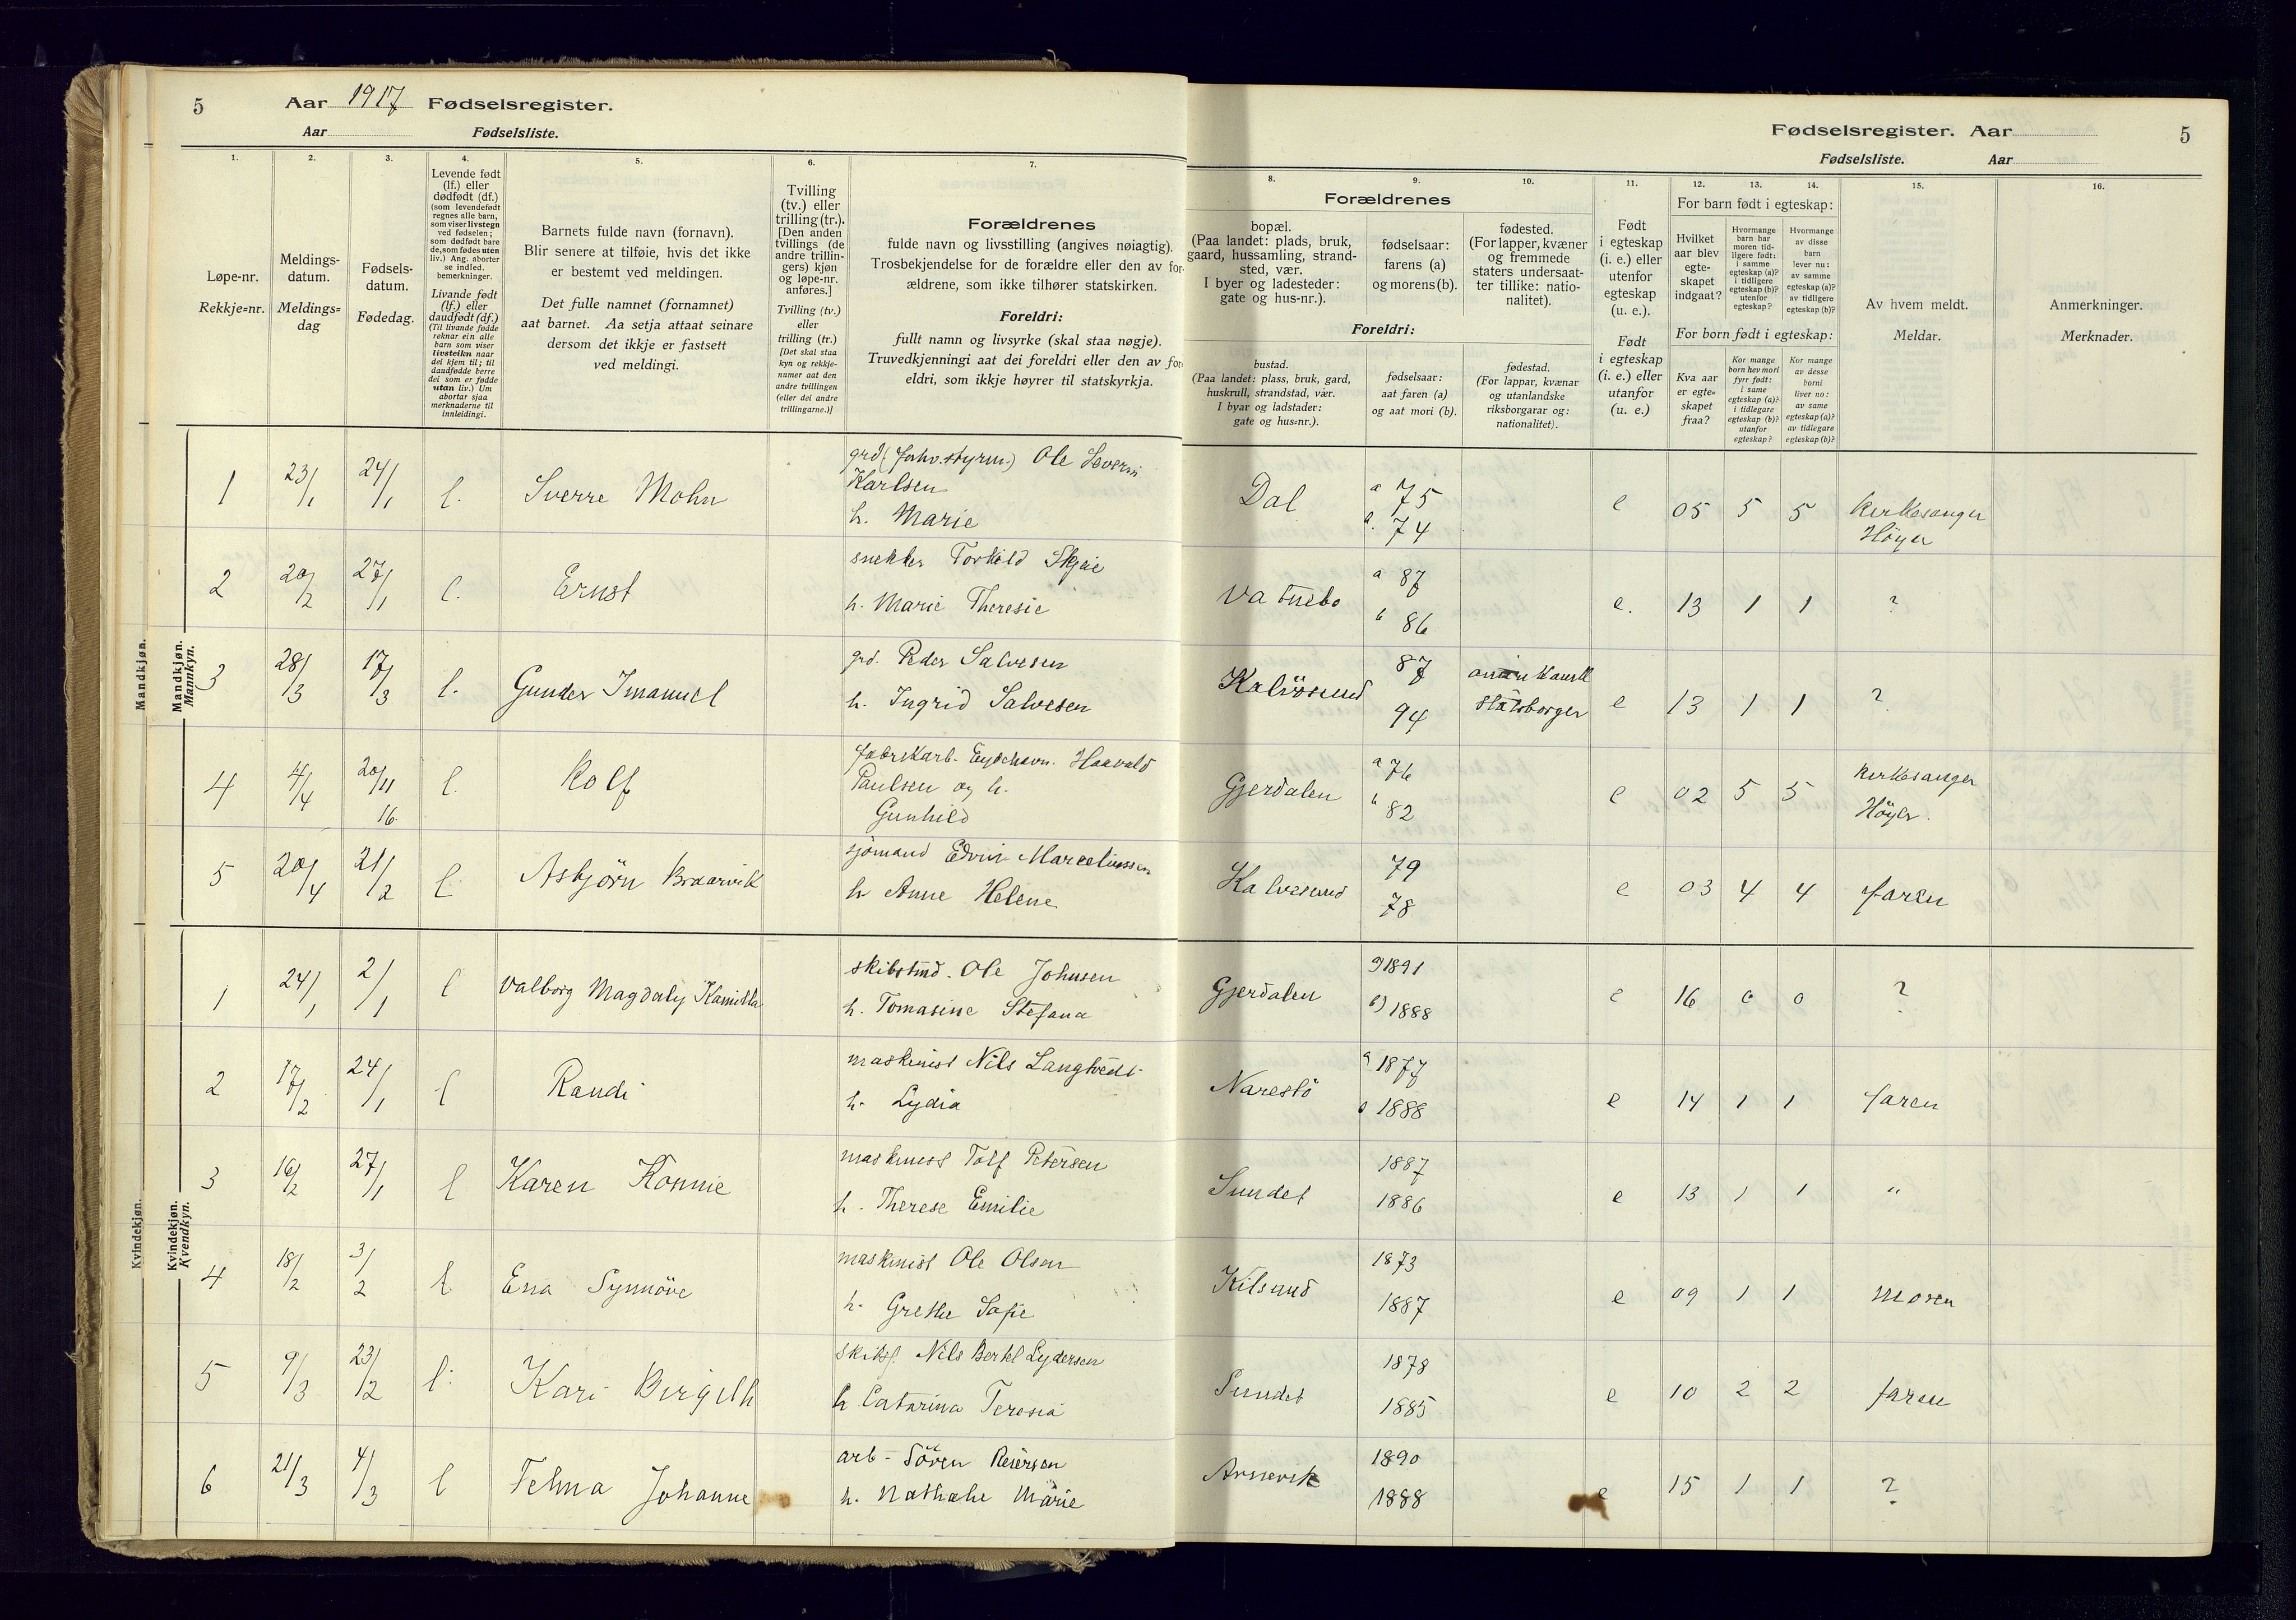 5 Aar 1917 Fødselsregister.
Aar Fødselsliste.
Fødselsregister. Aar 5
Fødselsliste. Aar
1.
Løpe-nr.
Rekkje-nr.
2.
Meldings-
datum.
Meldings-
dag
3.
Fødsels-
datum.
Fødedag.
4.
Levende født
(lf.) eller
dødfødt (df.)
(som levendefødt
regnes alle barn,
som viser livstegn
ved fødselen;
som dødfødt bare
de, som fødes uten
liv.) Ang. aborter
se indled.
bemerkninger.
Livande født
(lf.) eller
daudfødt (df.)
(Til livande fødde
reknar ein alle
barn som viser
livsteikn naar
dei kjem til; til
daudfødde berre
dei som er fødde
utan liv.) Um
abortar sjaa
merknaderne til
innleidingi.
5.
Barnets fulde navn (fornavn).
Blir senere at tilføie, hvis det ikke
er bestemt ved meldingen.
Det fulle namnet (fornamnet)
aat barnet. Aa setja attaat seinare
dersom det ikkje er fastsett
ved meldingi.
6.
Tvilling
(tv.) eller
trilling (tr.).
[Den anden
tvillings (de
andre trillin-
gers) kjøn
og løpe-nr.
anføres.]
Tvilling (tv.)
eller
trilling (tr.)
[Det skal staa
kyn og rekkje-
numer aat den
andre tvillingen
(eller dei andre
trillingarne.)]
7.
Forældrenes
fulde navn og livsstilling (angives nøiagtig).
Trosbekjendelse for de forældre eller den av for-
ældrene, som ikke tilhører statskirken.
Foreldri:
fullt namn og livsyrke (skal staa nøgje).
Truvedkjenningi aat dei foreldri eller den av for-
eldri, som ikkje høyrer til statskyrkja.
8.
Forældrenes
bopæl.
(Paa landet: plads, bruk,
gaard, hussamling, strand-
sted, vær.
I byer og ladesteder:
gate og hus-nr.).
Foreldri:
bustad.
(Paa landet: plass, bruk, gard,
huskrull, strandstad, vær.
I byar og ladstader:
gate og hus-nr.).
9.
fødselsaar:
farens (a)
og morens (b).
fødselsaar:
aat faren (a)
og aat mori (b).
10.
fødested.
(For lapper, kvæner
og fremmede
staters undersaat-
ter tillike: natio-
nalitet).
fødestad.
(For lappar, kvænar
og utanlandske
riksborgarar og:
nationalitet).
11.
Født
i egteskap
(i. e.) eller
utenfor
egteskap
(u. e.).
Født
i egteskap
(i. e.) eller
utanfor
(u. e.)
12. 13. 14.
For barn født i egteskap:
Hvilket
aar blev
egte-
skapet
indgaat?
Hvormange
barn har
moren tid-
ligere født:
i samme
egteskap (a)?
i tidligere
egteskap (b)?
utenfor
egteskap?
Hvormange
av disse
barn
lever nu:
av samme
egteskap (a)?
av tidligere
egteskap (b)?
For born født i egteskap:
Kva aar
er egte-
skapet
fraa?
Kor mange
born hev mori
fyrr født:
i same
egteskap (a)?
i tidlegare
egteskap (b)?
utanfor
egteskap?
Kor mange
av desse
borni
liver no:
av same
egteskap (a)?
av tidlegare
egteskap (b)?
15.
Av hvem meldt.
Meldar.
16.
Anmerkninger.
Merknader.
Mandkjøn.
Mandkjøn.
Mannkyn.
1 23/1 24/1 l. Sverre Mohn grd Ole Severin
Karlsen
h. Marie Dal a 75 b. 74 e 05 5 5 Kirkesanger
Höyer
2 20/2 27/1 l. Ernst snekker Torkild Skjie
h. Marie Theresie Vatnebo a 87 b 86 e. 13 1 1 ?
3 28/3 17/3 l. Gunder Imanuel grd. Peder Salvesen
h. Ingrid Salvesen Kalvösund 87 94 amerikansk
statsborger e 13 1 1 ?
4 4/4 20/11 16. l. Rolf fabrikarb. Eydehavn. Haavald
Paulsen og h.
Gunhild Gjerdalen a 76 b 82 e 02 5 5 Kirkesanger
Höyer.
5 20/4 21/2 l Asbjörn Braarvik sjömand Edvin Marceliussen
h Anne Helene Kalvesund 79 78 e 03 4 4 faren
Kvindekjøn.
Kvindekjøn.
Kvendkyn.
1 24/1 2/1 l Valborg Magdaly Kamilla skibstmd. Ole Johnsen
h. Tomasine Stefana Gjerdalen a) 1891 b) 1888 e 16 0 0 ?
2 17/2 24/1 l Randi maskinist Nils Langtvedt
h. Lydia Narestö a 1877 b 1888 e 14 1 1 faren
3 16/2 27/1 l Karen Konnie maskinist Tolf Petersen
h. Therese Emilie Sundet 1887 1886 e 13 1 1 "
4 18/2 3/2 l. Ena Synnöve maskinist Ole Olsen
h. Grethe Sofie Kilsund 1873 1887 e 09 1 1 moren
5 9/3 23/2 l. Kari Birgith skibsf. Nils Bertel Lydersen
h Catarina Teresia Sundet 1878 1885 e 10 2 2 faren
6 21/3 4/3 l Telma Johanne arb - Sören Reiersen
h. Nathalie Marie 1890 1888 e 15 1 1 ?